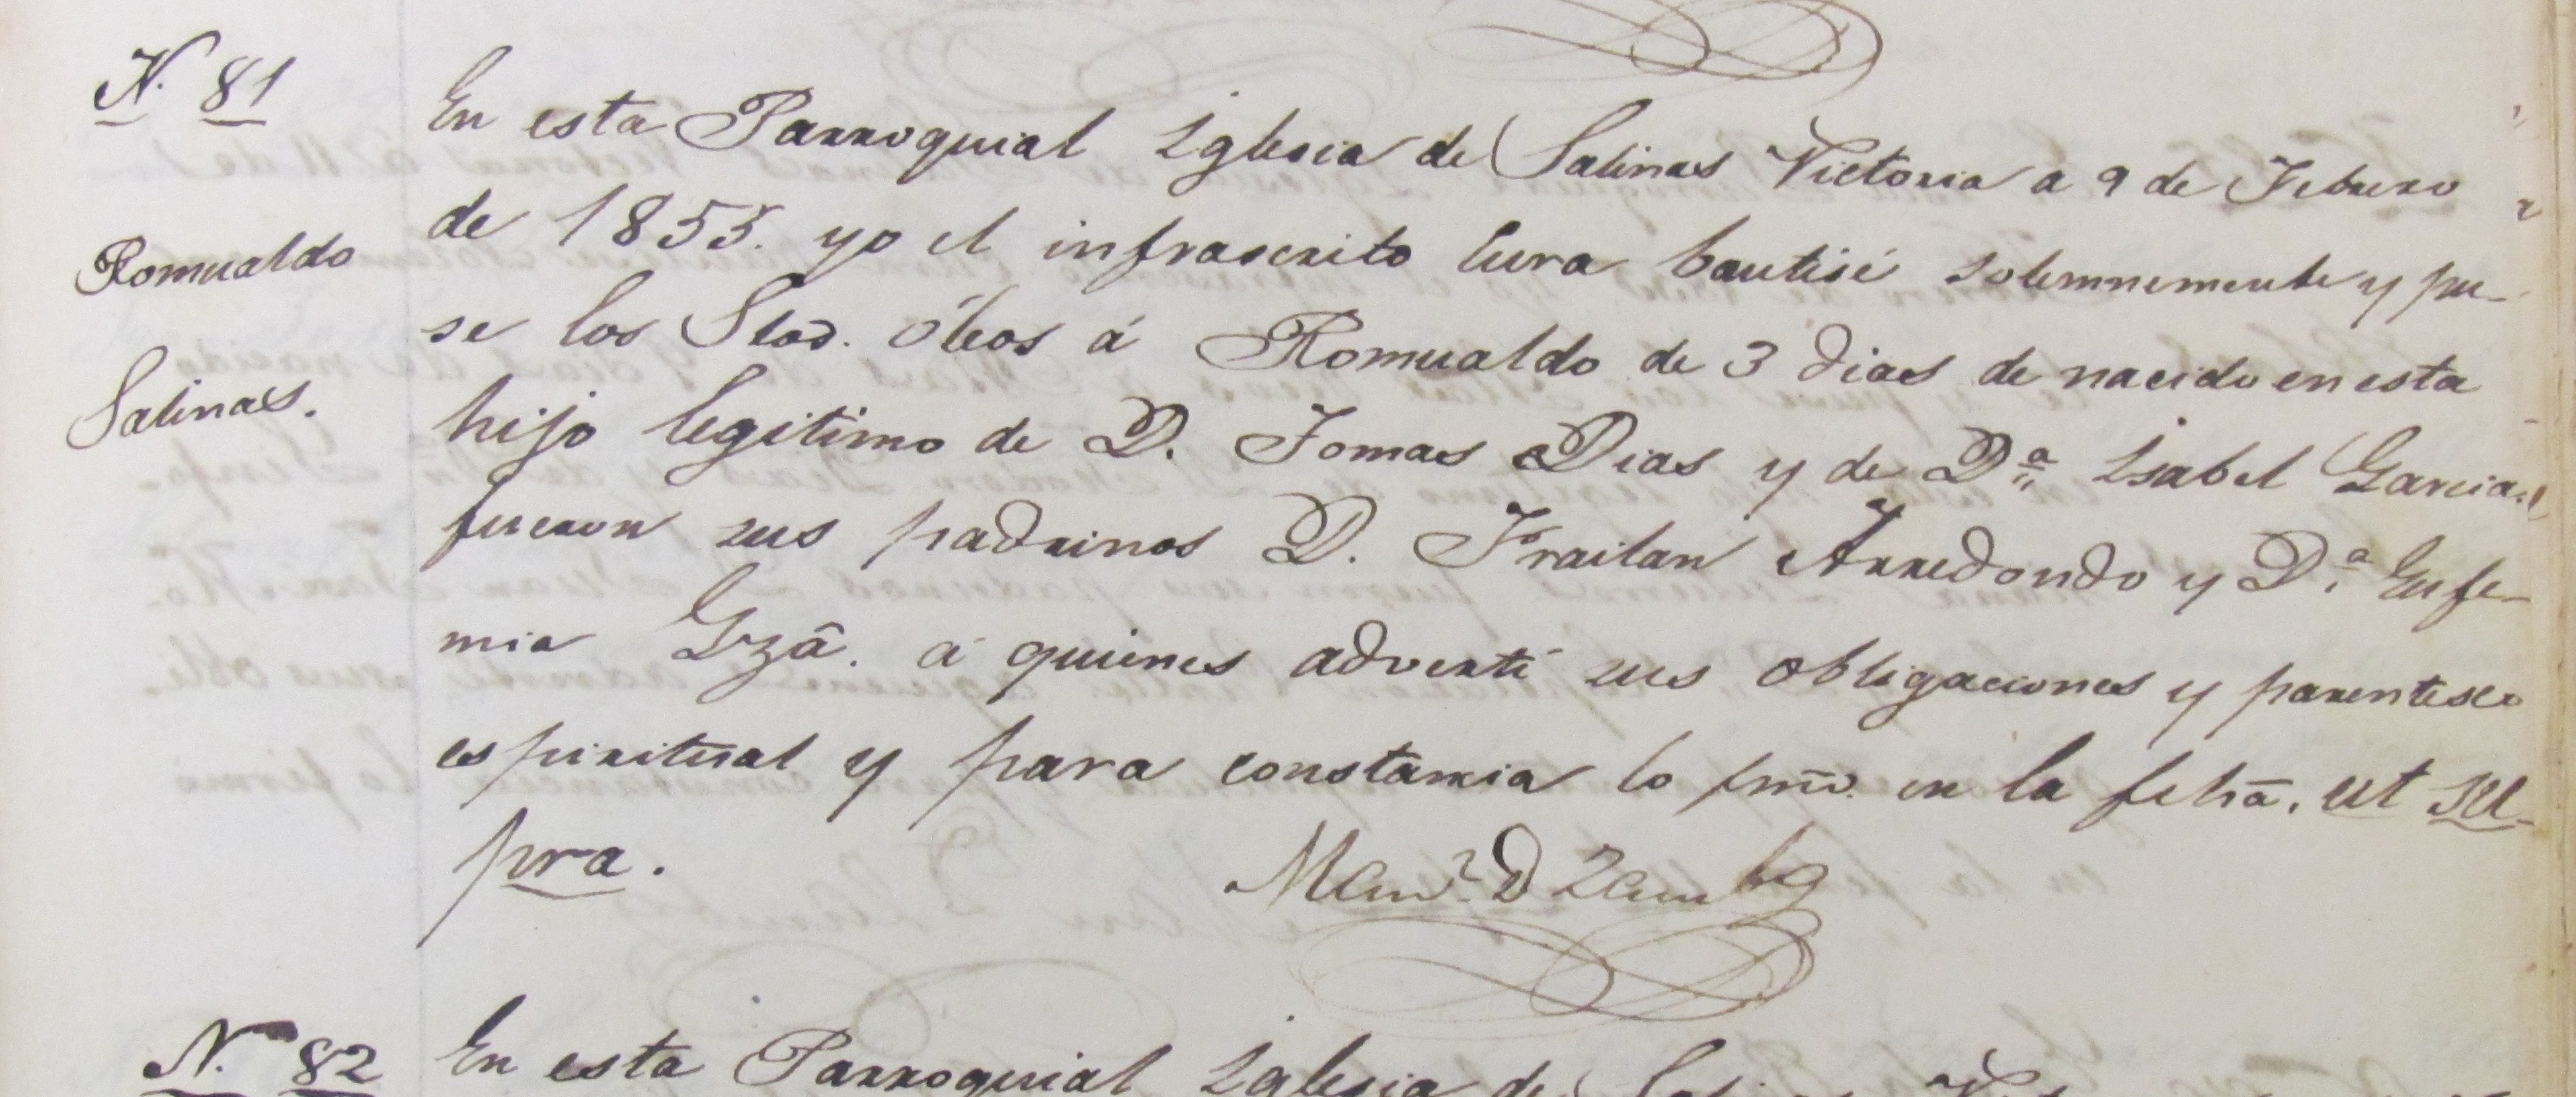 N. 81
Romualdo
Salinas.
En esta Parroquial Iglesia de Salinas Victoria a 9 de Febrero
de 1855. yo el infrascrito Cura bautisé solemnemente y pu-
se los Stos. óleos á Romualdo de 3 dias de nacido en esta
hijo legitimo de D. Tomas Dias y de Dª Isabel Garcia
fueron sus padrinos D. Frailan Arredondo y D.ª Eufe-
mia Gzâ. á quienes adverti sus obligaciones y parentesco
espiritual y para constancia lo fmo. en la fchã. ut su-
pra.
N. 82
En esta Parroquial Iglesia de